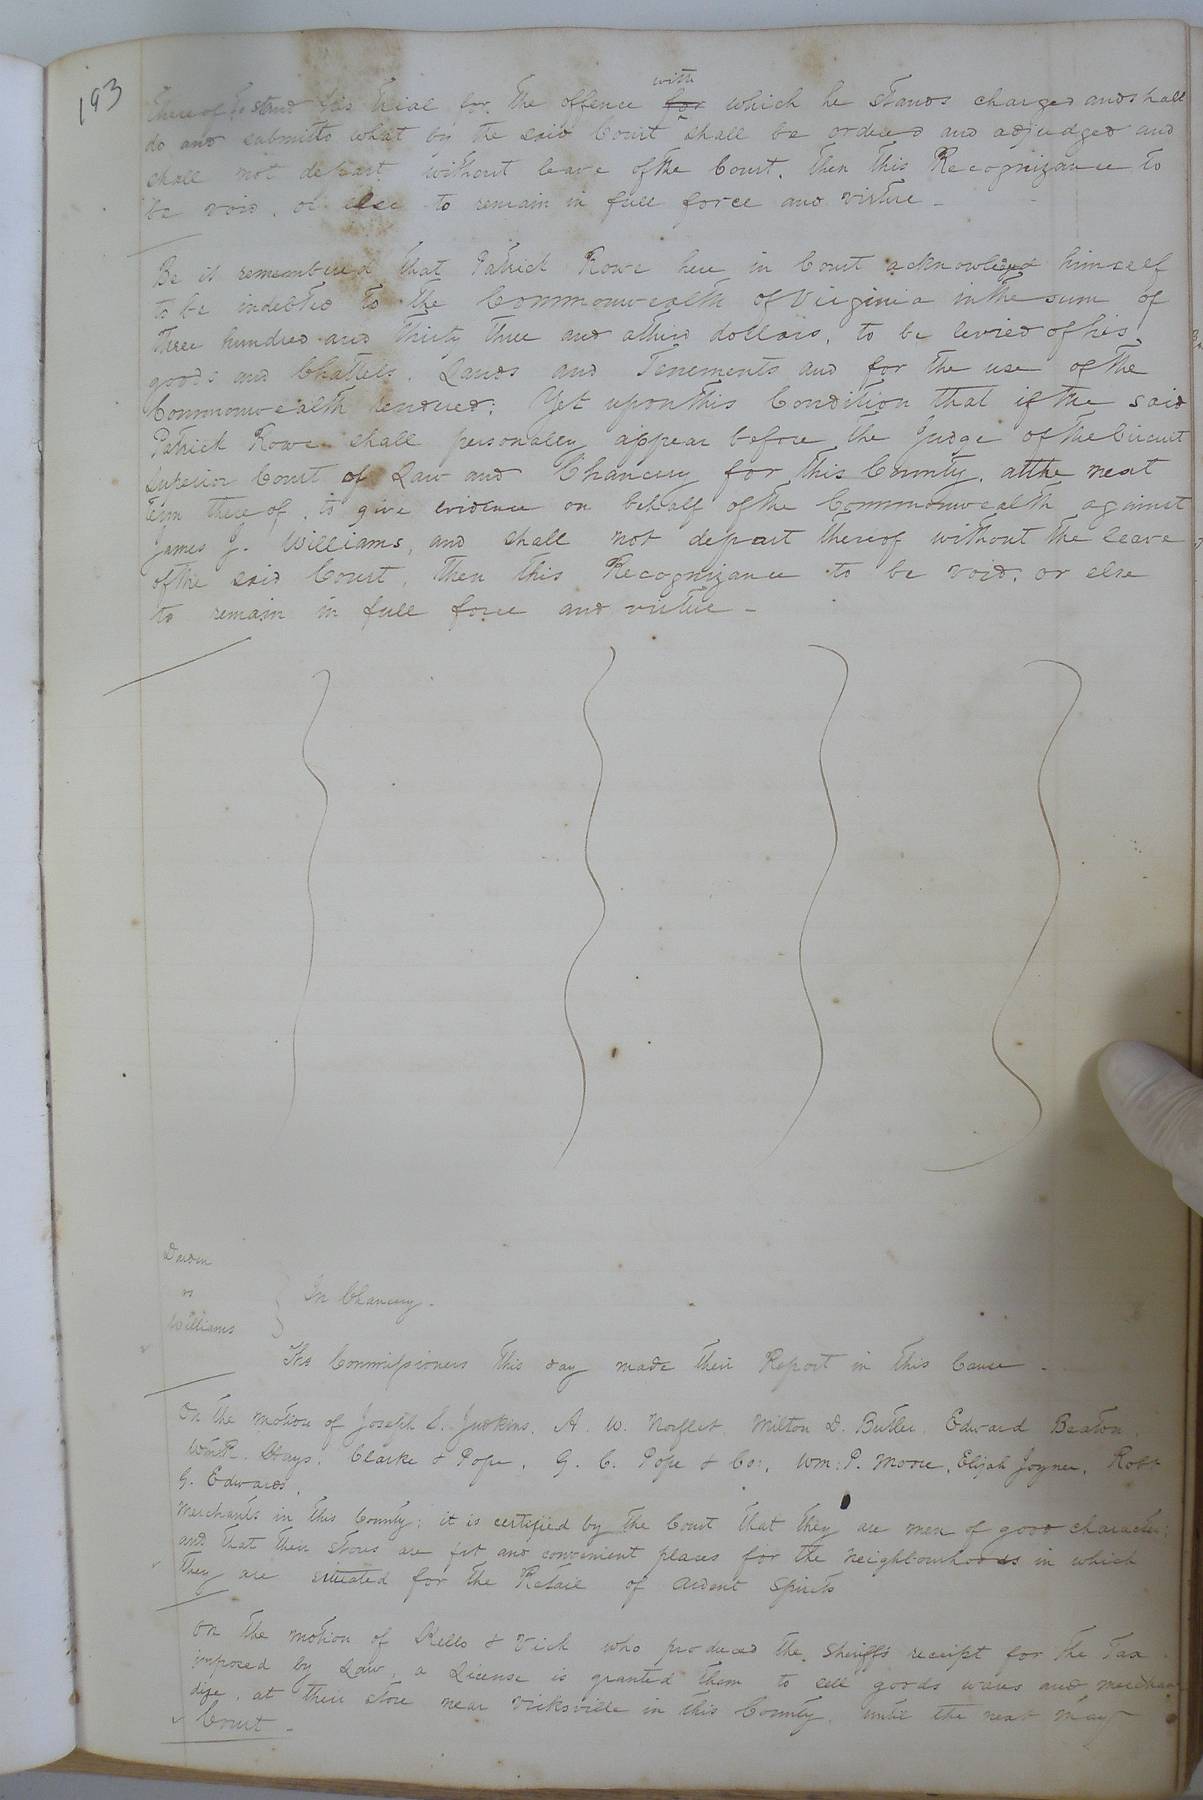 193
thereof to stand his trial for the offence with for which he stands charged and shall
do and submitts what by the said Court shall be ordered and adjudged and
shall not depart without leave of the Court, then this Recognizance to
be void, or else to remain in full force and virtue -
Be it remembered that Patrick Rowe here in Court acknowledged himself
to be indebted to the Commonwealth of Virginia in the sum of
Three hundred and thirty three and a third dollars, to be levied of his
goods and Chattels, Lands and Tenements and for the use of the
Commonwealth rendered: Yet upon this Condition that if the said
Patrick Rowe shall personally appear before the Judge of the Circuit
Superior Court of Law and Chancery for this County, at the next
term thereof, to give evidence on behalf of the Commonwealth against
James J. Williams, and shall not depart thereof without the leave
of the said Court, then this Recognizance to be void, or else
to remain in full force and virtue -
vs
Williams
In Chancery.
The Commissioners this day made their Report in this Cause -
On the motion of Joseph S. Judkins, A. W. Norfleet, Milton D. Butler, Edward Beaton,
Clarke & Pope, G. C. Pope & Co:, Wm: P. Moore, Elijah Joyner, Robt
G. Edwards,
Merchants in this County; it is certified by the Court that they are men of good character;
and that their stores are fit and convenient places for the neighbourhoods in which
they are situated for the Retail of ardent spirits
On the motion of Kello & Vick who produced the Sheriff's receipt for the Tax
imposed by Law, a License is granted them to sell goods wares and merchan
dize, at their store near Vicksville in this County, until the next May
Court -